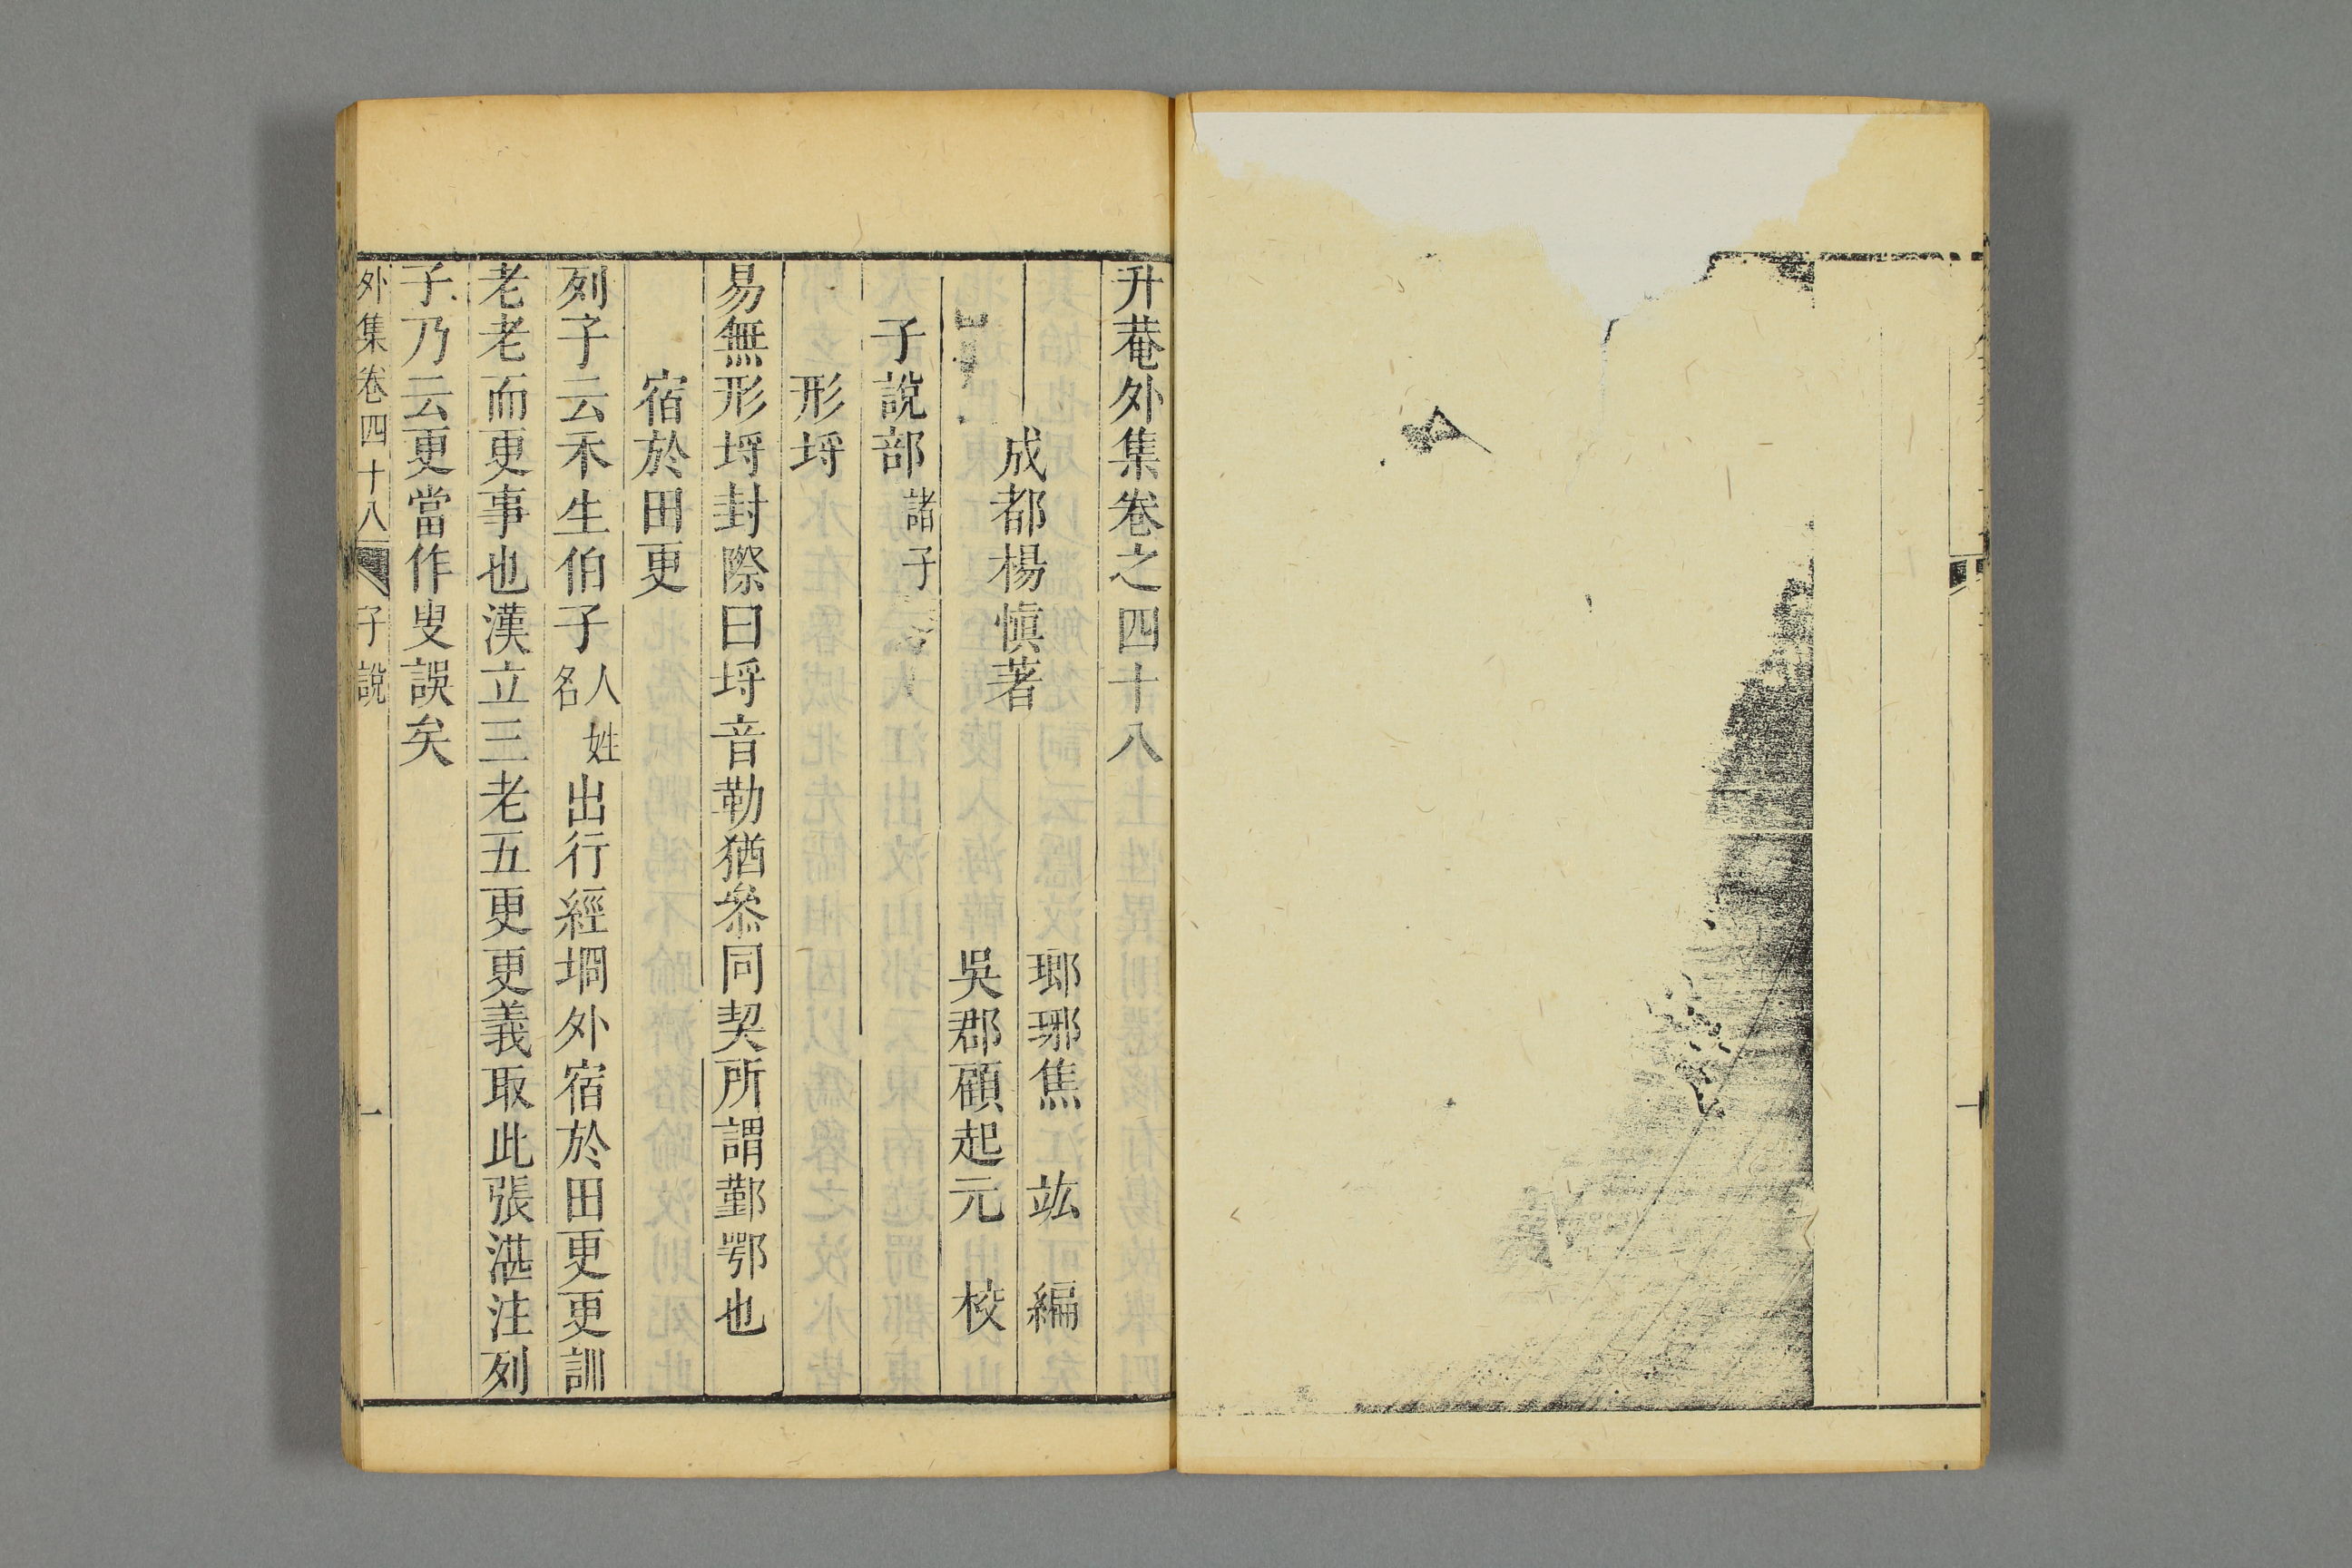 升菴外集卷之四十八
成都楊慎著
瑯琊焦竑編
吳郡顧起元校
子說部 諸子
形埒
易無形埒封際曰埒音勒猶叅同契所謂鄞鄂也
宿於田更
列子云禾生伯子 人姓名 出行經坰外宿於田更更訓
老老而更事也漢立三老五更更義取此張湛注列
子乃云更當作叟誤矣
外集卷四十八 子說 一